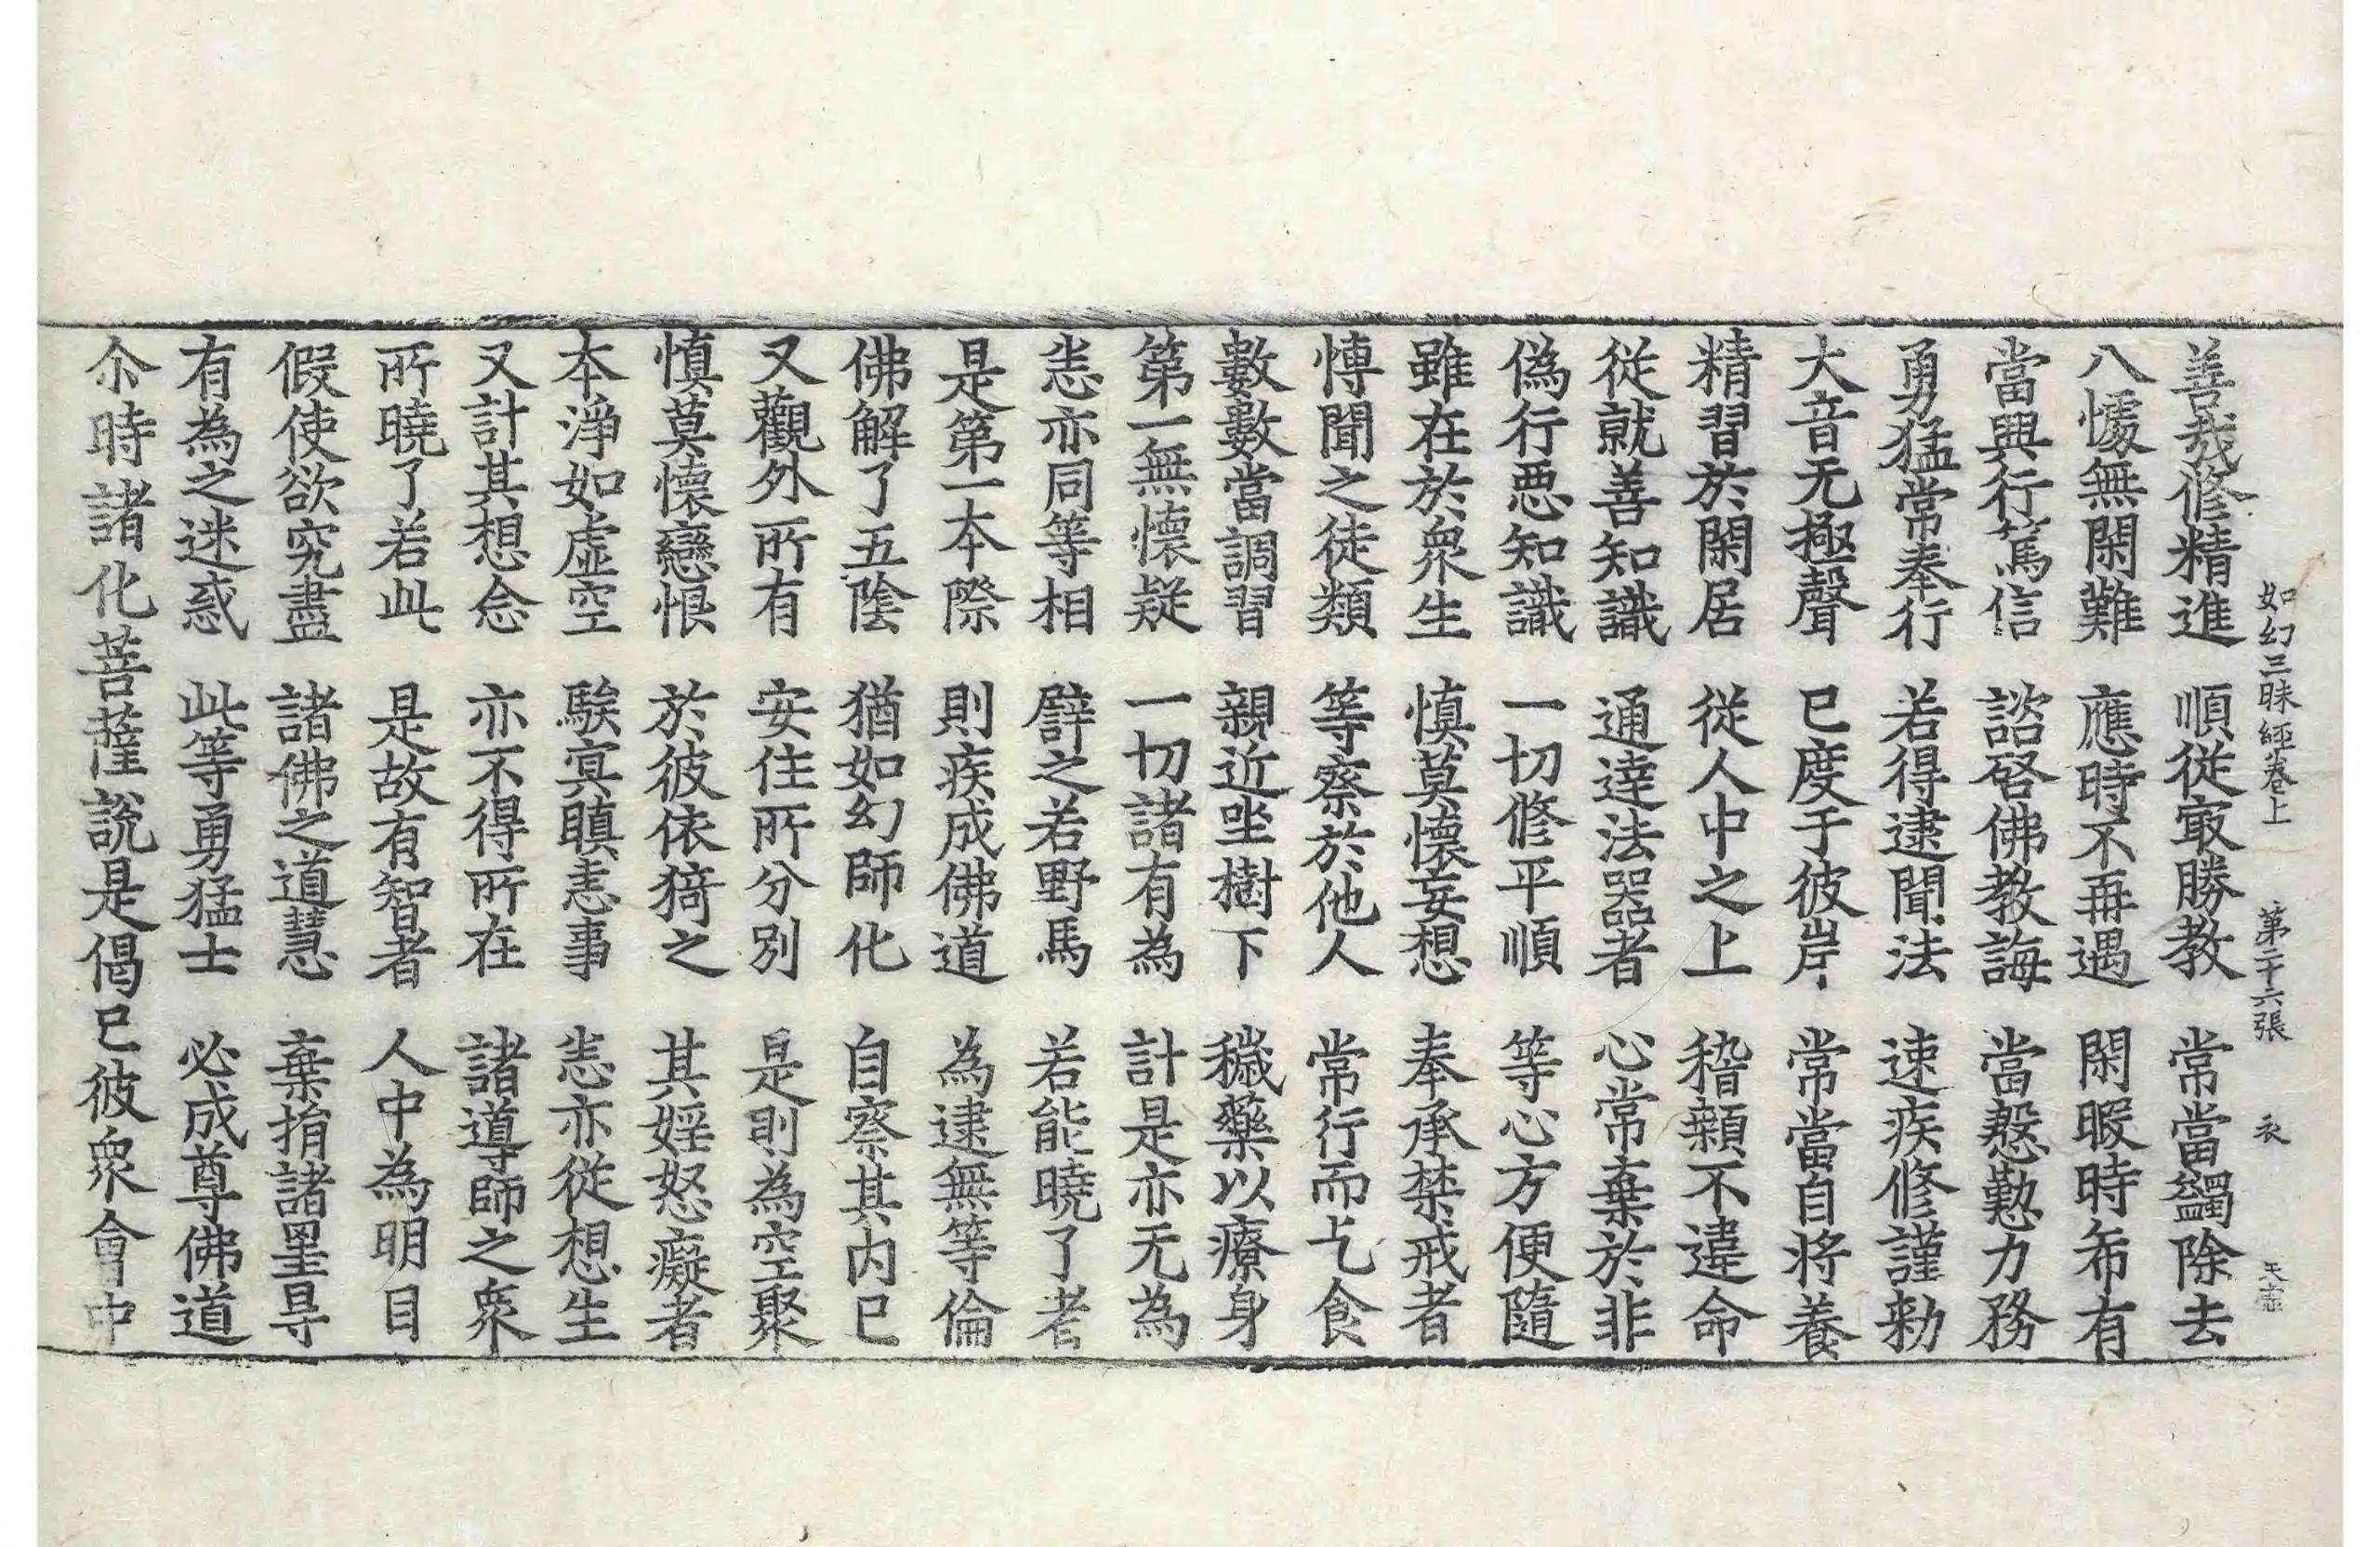 如幻三昧經卷上　第二十六張　衣　天壺
善哉修精進　順從冣勝教　常當蠲除去
八懅無閑難　應時不再遇　閑暇時希有
當興行篤信　諮啓佛教誨　當慇懃力務
勇猛常奉行　若得逮聞法　速疾修謹勑
大音无極聲　已度于彼岸　常當自將養
精習於閑居　從人中之上　稽顙不違命
從就善知識　通達法器者　心常棄於非
偽行惡知識　一切修平順　等心方便隨
雖在於衆生　慎莫懷妄想　奉承禁戒者
愽聞之徒類　等察於他人　常行而乞食
數數當調習　親近坐樹下　穢藥以療身
第一無懷疑　一切諸有為　計是亦无為
恙亦同等相　譬之若野馬　若能曉了者
是第一本際　則疾成佛道　為逮無等倫
佛解了五陰　猶如幻師化　自察其内已
又觀外所有　安住所分別　是則為空聚
慎莫懷戀恨　於彼依猗之　其婬怒癡者
本淨如虛空　騃冥瞋恚事　恙亦從想生
又計其想念　亦不得所在　諸導師之衆
所曉了若此　是故有智者　人中為明目
假使欲究盡　諸佛之道慧　棄捐諸罣㝵
有為之迷惑　此等勇猛士　必成尊佛道
尒時諸化菩薩說是偈已彼衆會中